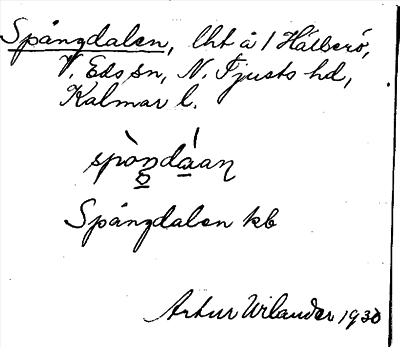 Spångdalen, lht å 1 Hälberö,
V. Eds sn, N. Tjusts hd,
Kalmar l.
Spångdalen kb
Artur Wilander 1930